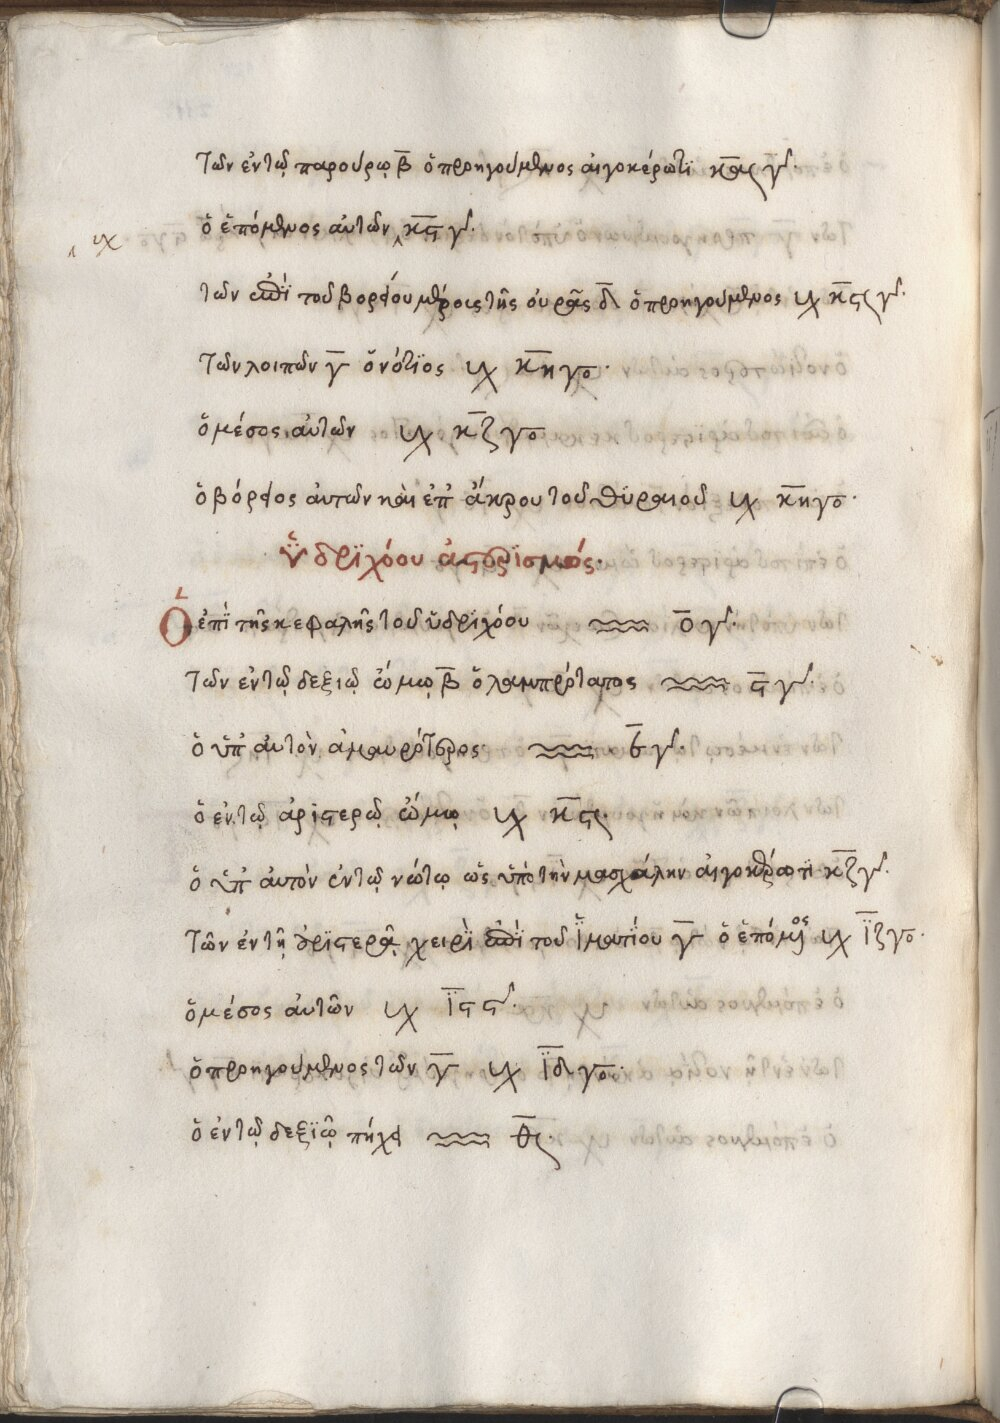 τῶν ἐν τῷ παρούρῳ β̅ ὁ προηγούμενος αἰγοκέρωτϊ κ̅δ γʹ.
ὁ ἑπόμενος αὐτῶν ‸ κ̅ϛ γʹ.
‸ ♑
τῶν ἐπὶ τοῦ βορείου μέροις τῆς οὐρᾶς δ̅ ὁ προηγούμενος ♑ κ̅ϛ γʹ.
τῶν λοιπῶν γ̅ ὁ νότϊος ♑ κ̅η γο.
ὁ μέσος αὐτῶν ♑ κ̅ζ γο
ὁ βόρειος αὐτῶν καὶ ἐπ' ἄκρου τοῦ θϋραιοῦ ♑ κ̅η γο.
ὑδρϊχόου ἀστερϊσμός.
Ὁ ἐπὶ τῆς κεφαλῆς τοῦ ὑδρϊχόου ♒ ο̅ γʹ.
τῶν ἐν τῷ δεξιῷ ὤμῳ β̅ ὁ λαμπρότατος ♒ ϛ̅ γʹ.
ὁ ὑπ' αὐτὸν ἀμαυρότερος ♒ ε̅ γʹ.
ὁ ἐν τῷ ἀριστερῷ ὤμῳ ♑ κ̅ϛ.
ὁ ὑπ' αὐτὸν ἐν τῷ νώτῳ ὡς ὑπὸ τὴν μασχάλην αἰγοκέρωτι κ̅ζ γʹ.
τῶν ἐν τῇ ἀρϊστερᾷ χειρὶ ἐπὶ τοῦ ἱματίου γ̅ ὁ ἑπόμος ♑ ι̅ζ γο.
ὁ μέσος αὐτῶν ♑ ι̅ϛ ϛʹ.
ὁ προηγούμενος τῶν γ̅ ♑ ι̅δ γο.
ὁ ἐν τῷ δεξϊῷ πήχει ♒ θ̅.